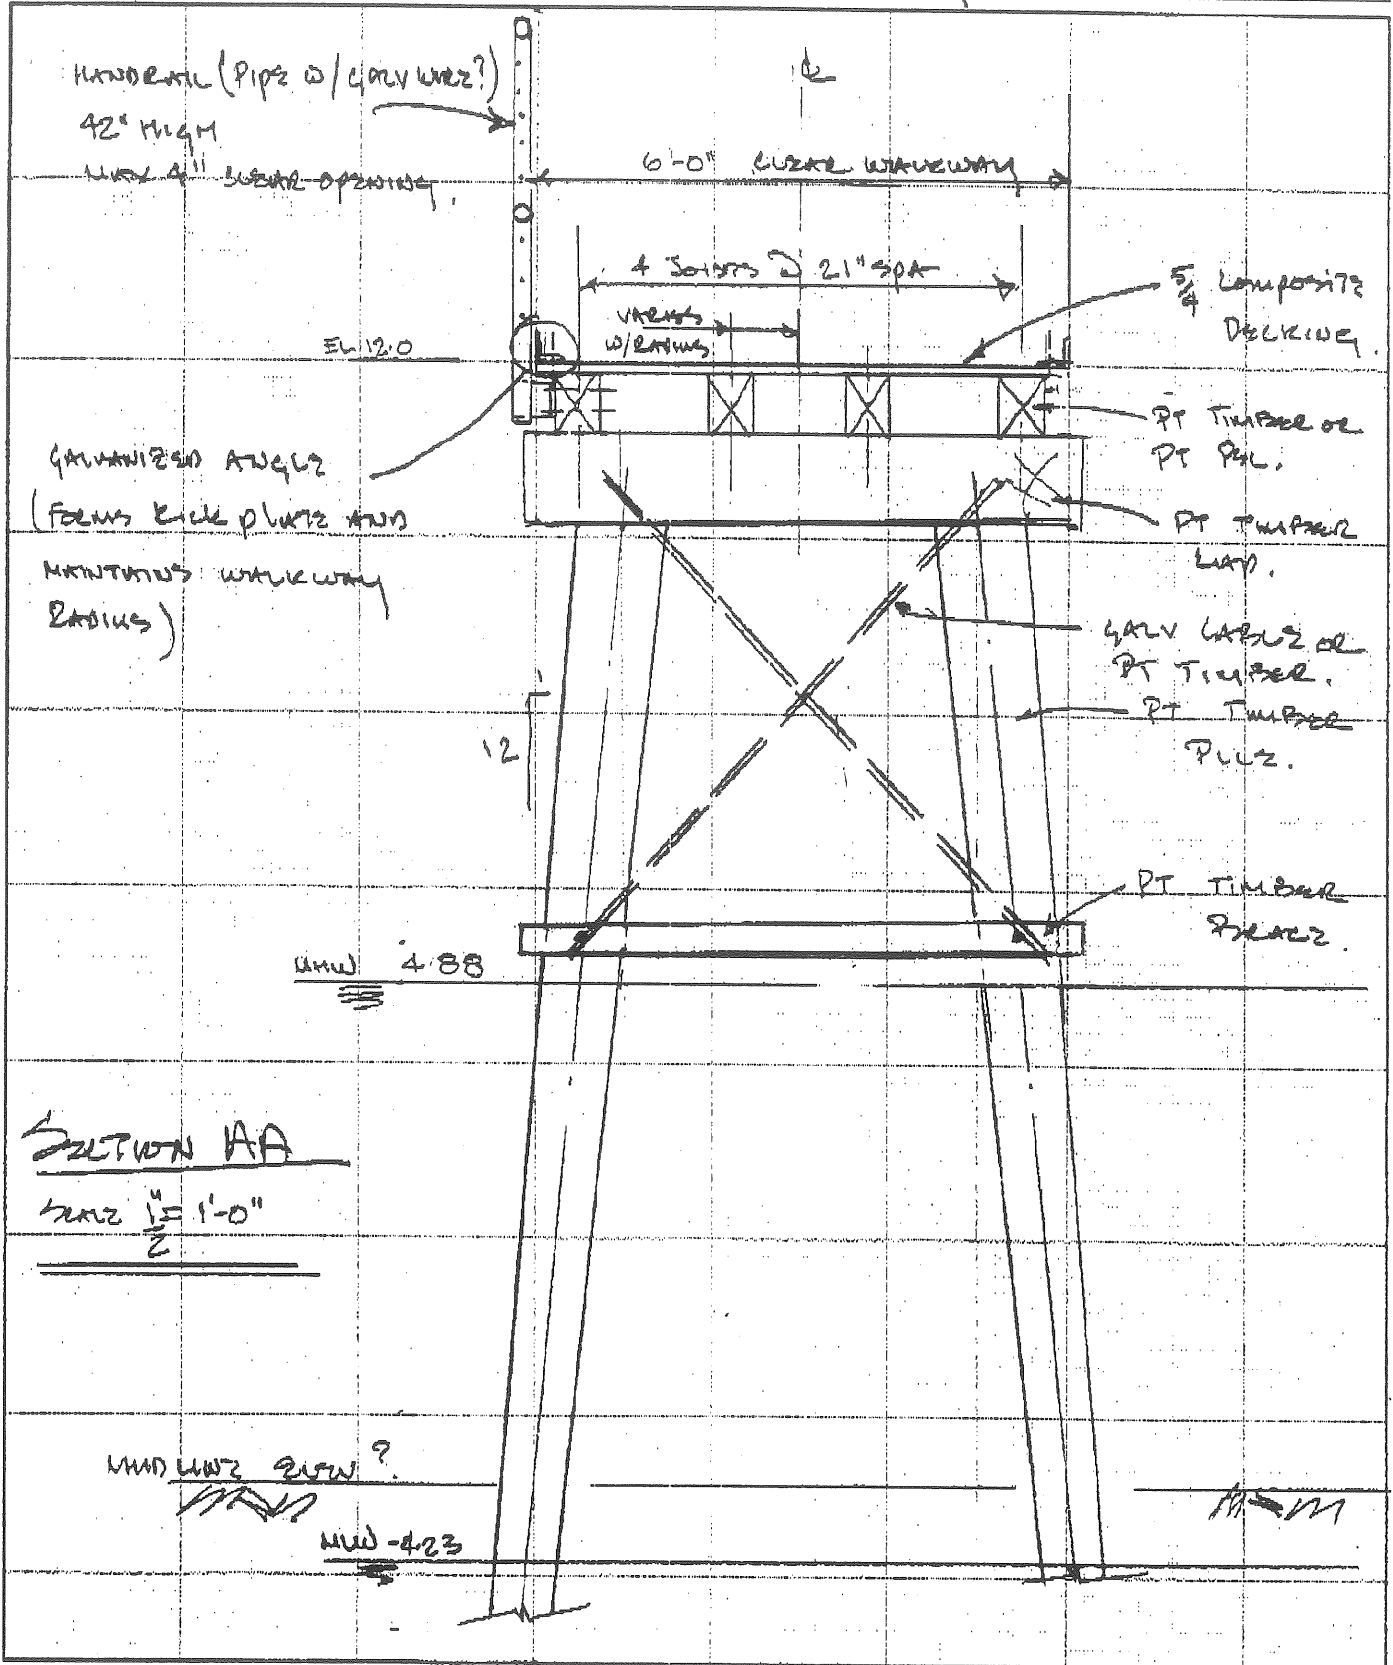 HANDRAIL (PIPE W/ GALV WIRE?)
42" HIGH
MAX 4" CLEAR OPENING.
℄
6'-0" CLEAR WALKWAY
4 JOISTS @ 21" SPA
VARIES
W/RADIUS
5/4 COMPOSITE
DECKING.
EL 12.0
PT TIMBER OR
PT PSL.
GALVANIZED ANGLE
(FORMS KICK PLATE AND
MAINTAINS WALKWAY
RADIUS)
PT TIMBER
CAP.
GALV CABLE OR
PT TIMBER.
PT TIMBER
PILE.
1
12
PT TIMBER
BRACE.
MHW 4.88
SECTION AA
SCALE 1/2" = 1'-0"
MUD LINE ELEV ?
MLW -4.23